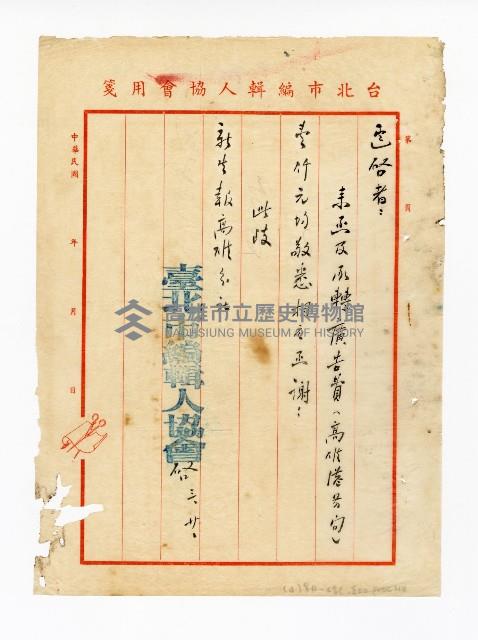 台北市編輯人協會用箋
第 頁
逕啓者:
来函及承轉廣告費(高雄港者旬)
壹仟元均敬悉相應函謝:
此致
新生報高雄分社
臺北市編輯人協會
啓 三、廿、
中華民國 年 月 日
高雄市立歷史博物館
KAOHSIUNG MUSEUM OF HISTORY